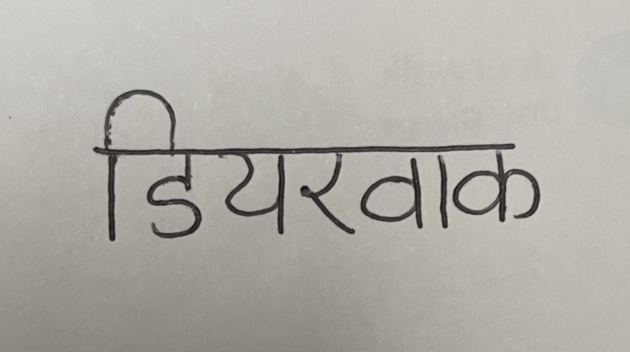 डियरवाक